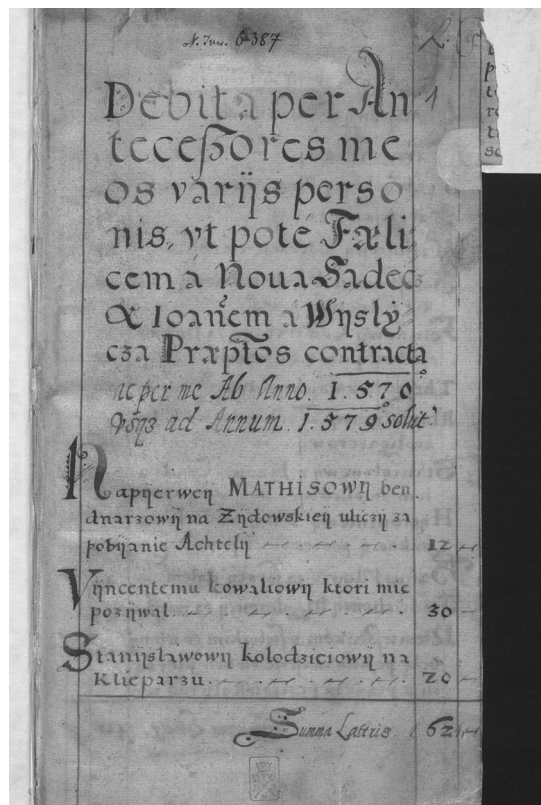 N. Inw. 6387
1
Debita per An
tecessores me
os varijs perso
nis, vt poté Fæli
cem á Noua Sadecz
& Ioañem a Wijsly
cza Præptos contracta
ac per me Ab Anno. 1.570
vsqз ad Annum. 1.579 soluť.
Napijerweij MATHISOWIJ ben
dnarzowij na Zydowskieij uliczij za
pobijanie Achtelij 12
Vijncentemu kowaliowij ktori mie
pozijwał. 30
Stanijsławowij kolodzieiowij na
Klieparzu. 20
Summa Latteris. 62